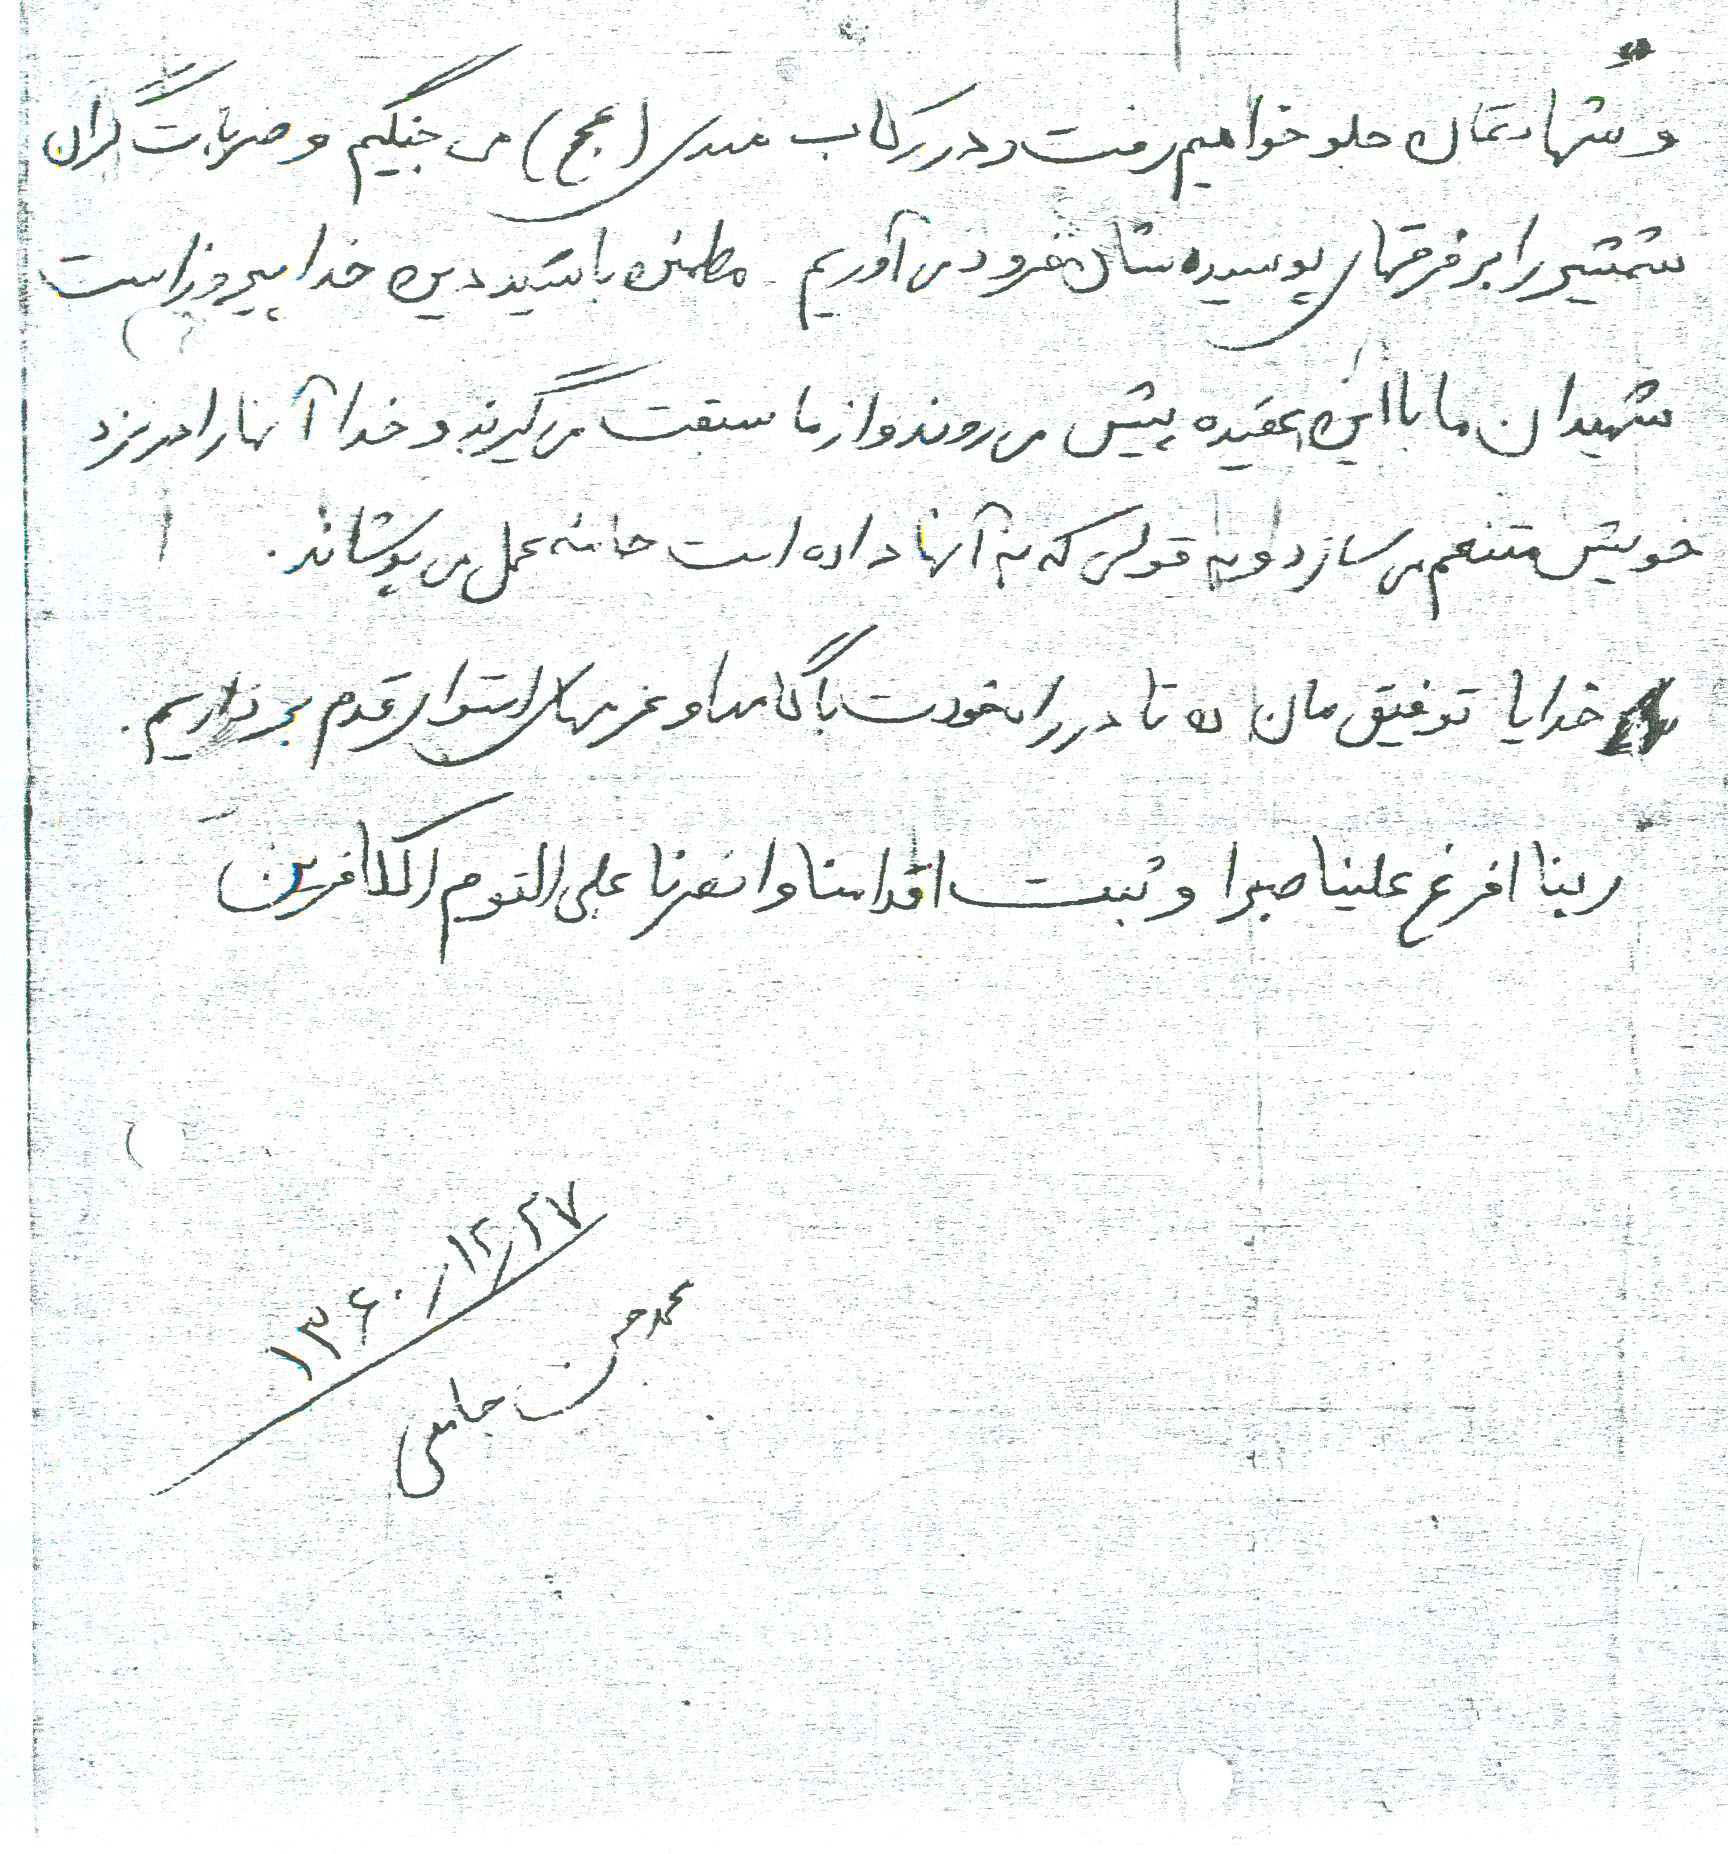 و شهادتمان جلو خواهیم رفت و در رکاب مهدی (عج) می جنگیم و ضربات گران
شمشیر را بر فرقهای پوسیده شان فرود می آوریم . مطمئن باشید دین خدا پیروز است
شهیدان ما با این عقیده پیش می روند و از ما سبقت می گیرند و خدا آنها را در نزد
خویش متنعم می سازد و به قولی که به آنها داده است جامه عمل می پوشاند .
خدایا توفیق مان ده تا در راه خودت با گامها و عزمهای استوار قدم برداریم .
ربنا افرغ علینا صبرا و ثبت اقدامنا وانصرنا علی القوم الکافرین
۱۳۶۰/۱۲/۲۷
محمد حسن جامعی